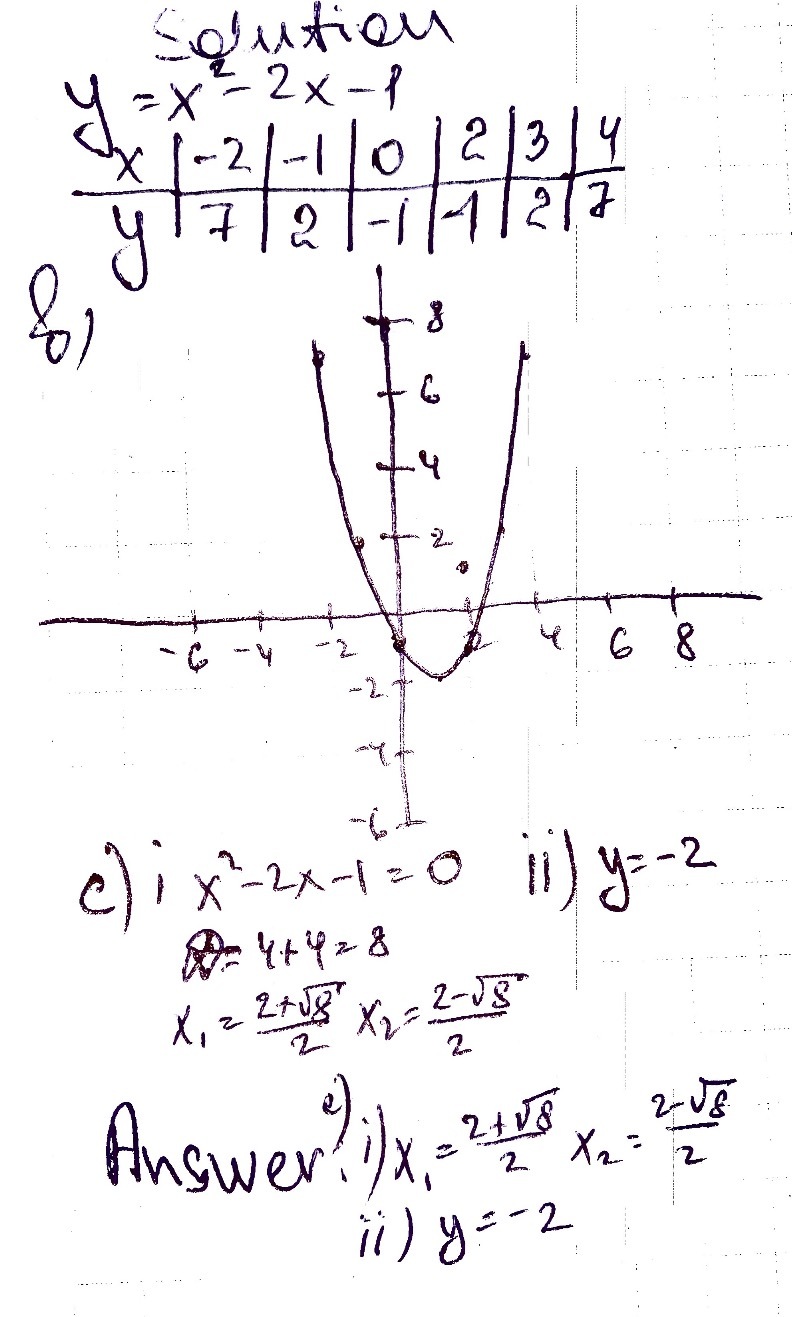 Solution
y = x² - 2x - 1
x | -2 | -1 | 0 | 2 | 3 | 4
y | 7 | 2 | -1 | -1 | 2 | 7
b)
8
6
4
2
-6 -4 -2 2 4 6 8
-2
-4
-6
c) i x² - 2x - 1 = 0 ii) y = -2
D = 4 + 4 = 8
x₁ = (2+√8)/2 x₂ = (2-√8)/2
Answer: c) i) x₁ = (2+√8)/2 x₂ = (2-√8)/2
ii) y = -2